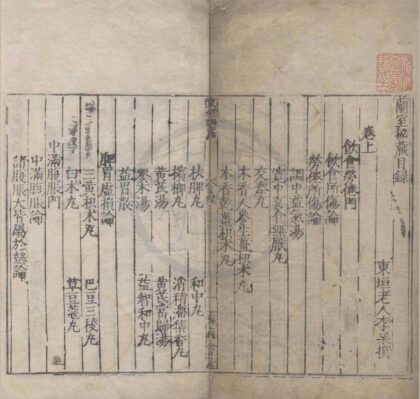 蘭室秘藏目錄
東垣老人李杲撰
卷上
飲食勞倦門
飲食所傷論
勞倦所傷論
調中益氣湯
寬中喜食無厭丸
交泰丸
木香人參生薑枳木丸
木香乾薑枳木丸
扶脾丸
和中丸
檳榔丸
消積滯集香丸
黃芪湯
黃芪當歸湯
參朮湯
益智和中丸
益胃散
脾胃虛損論
三黃枳木丸
巴豆三稜丸
白木丸
草豆蔻丸
中滿腹脹門
中滿腹脹論
諸腹脹大皆屬於熱論